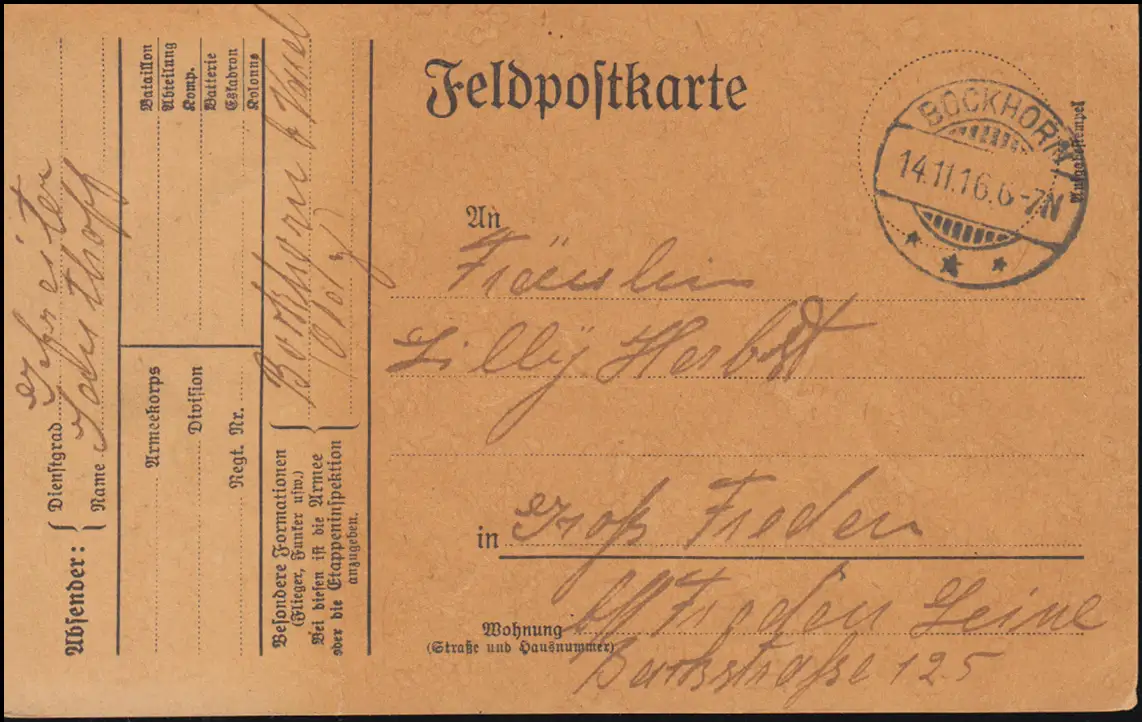 Feldpostkarte
BOCKHORN
14.11.16.6-7N
An
Fräulein
Lilly Herbst
in Groß Freden
Freden Leine
Wohnung
(Straße und Hausnummer)
125
Absender:
Dienstgrad
Name
Bataillon
Abteilung
Komp.
Batterie
Eskadron
Kolonne
Armeekorps
Division
Regt. Nr.
Besondere Formationen
(Flieger, Funker usw.)
Bei diesen ist die Armee
oder die Etappeninspektion
anzugeben.
Bockhorn b Varel